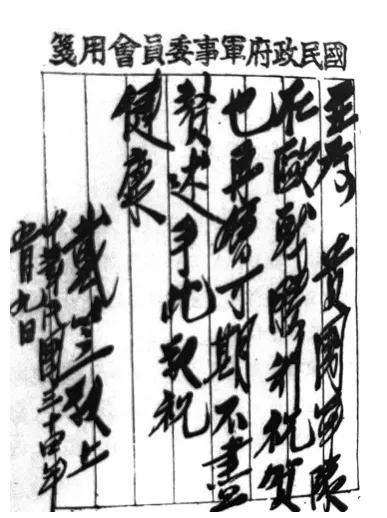 國民政府軍事委員會用箋
至為 貴國軍隊
在歐戰勝利祝賀
也再會可期不盡
贅述手此敬祝
健康
戴笠敬上
中華民國三十四年
五月九日